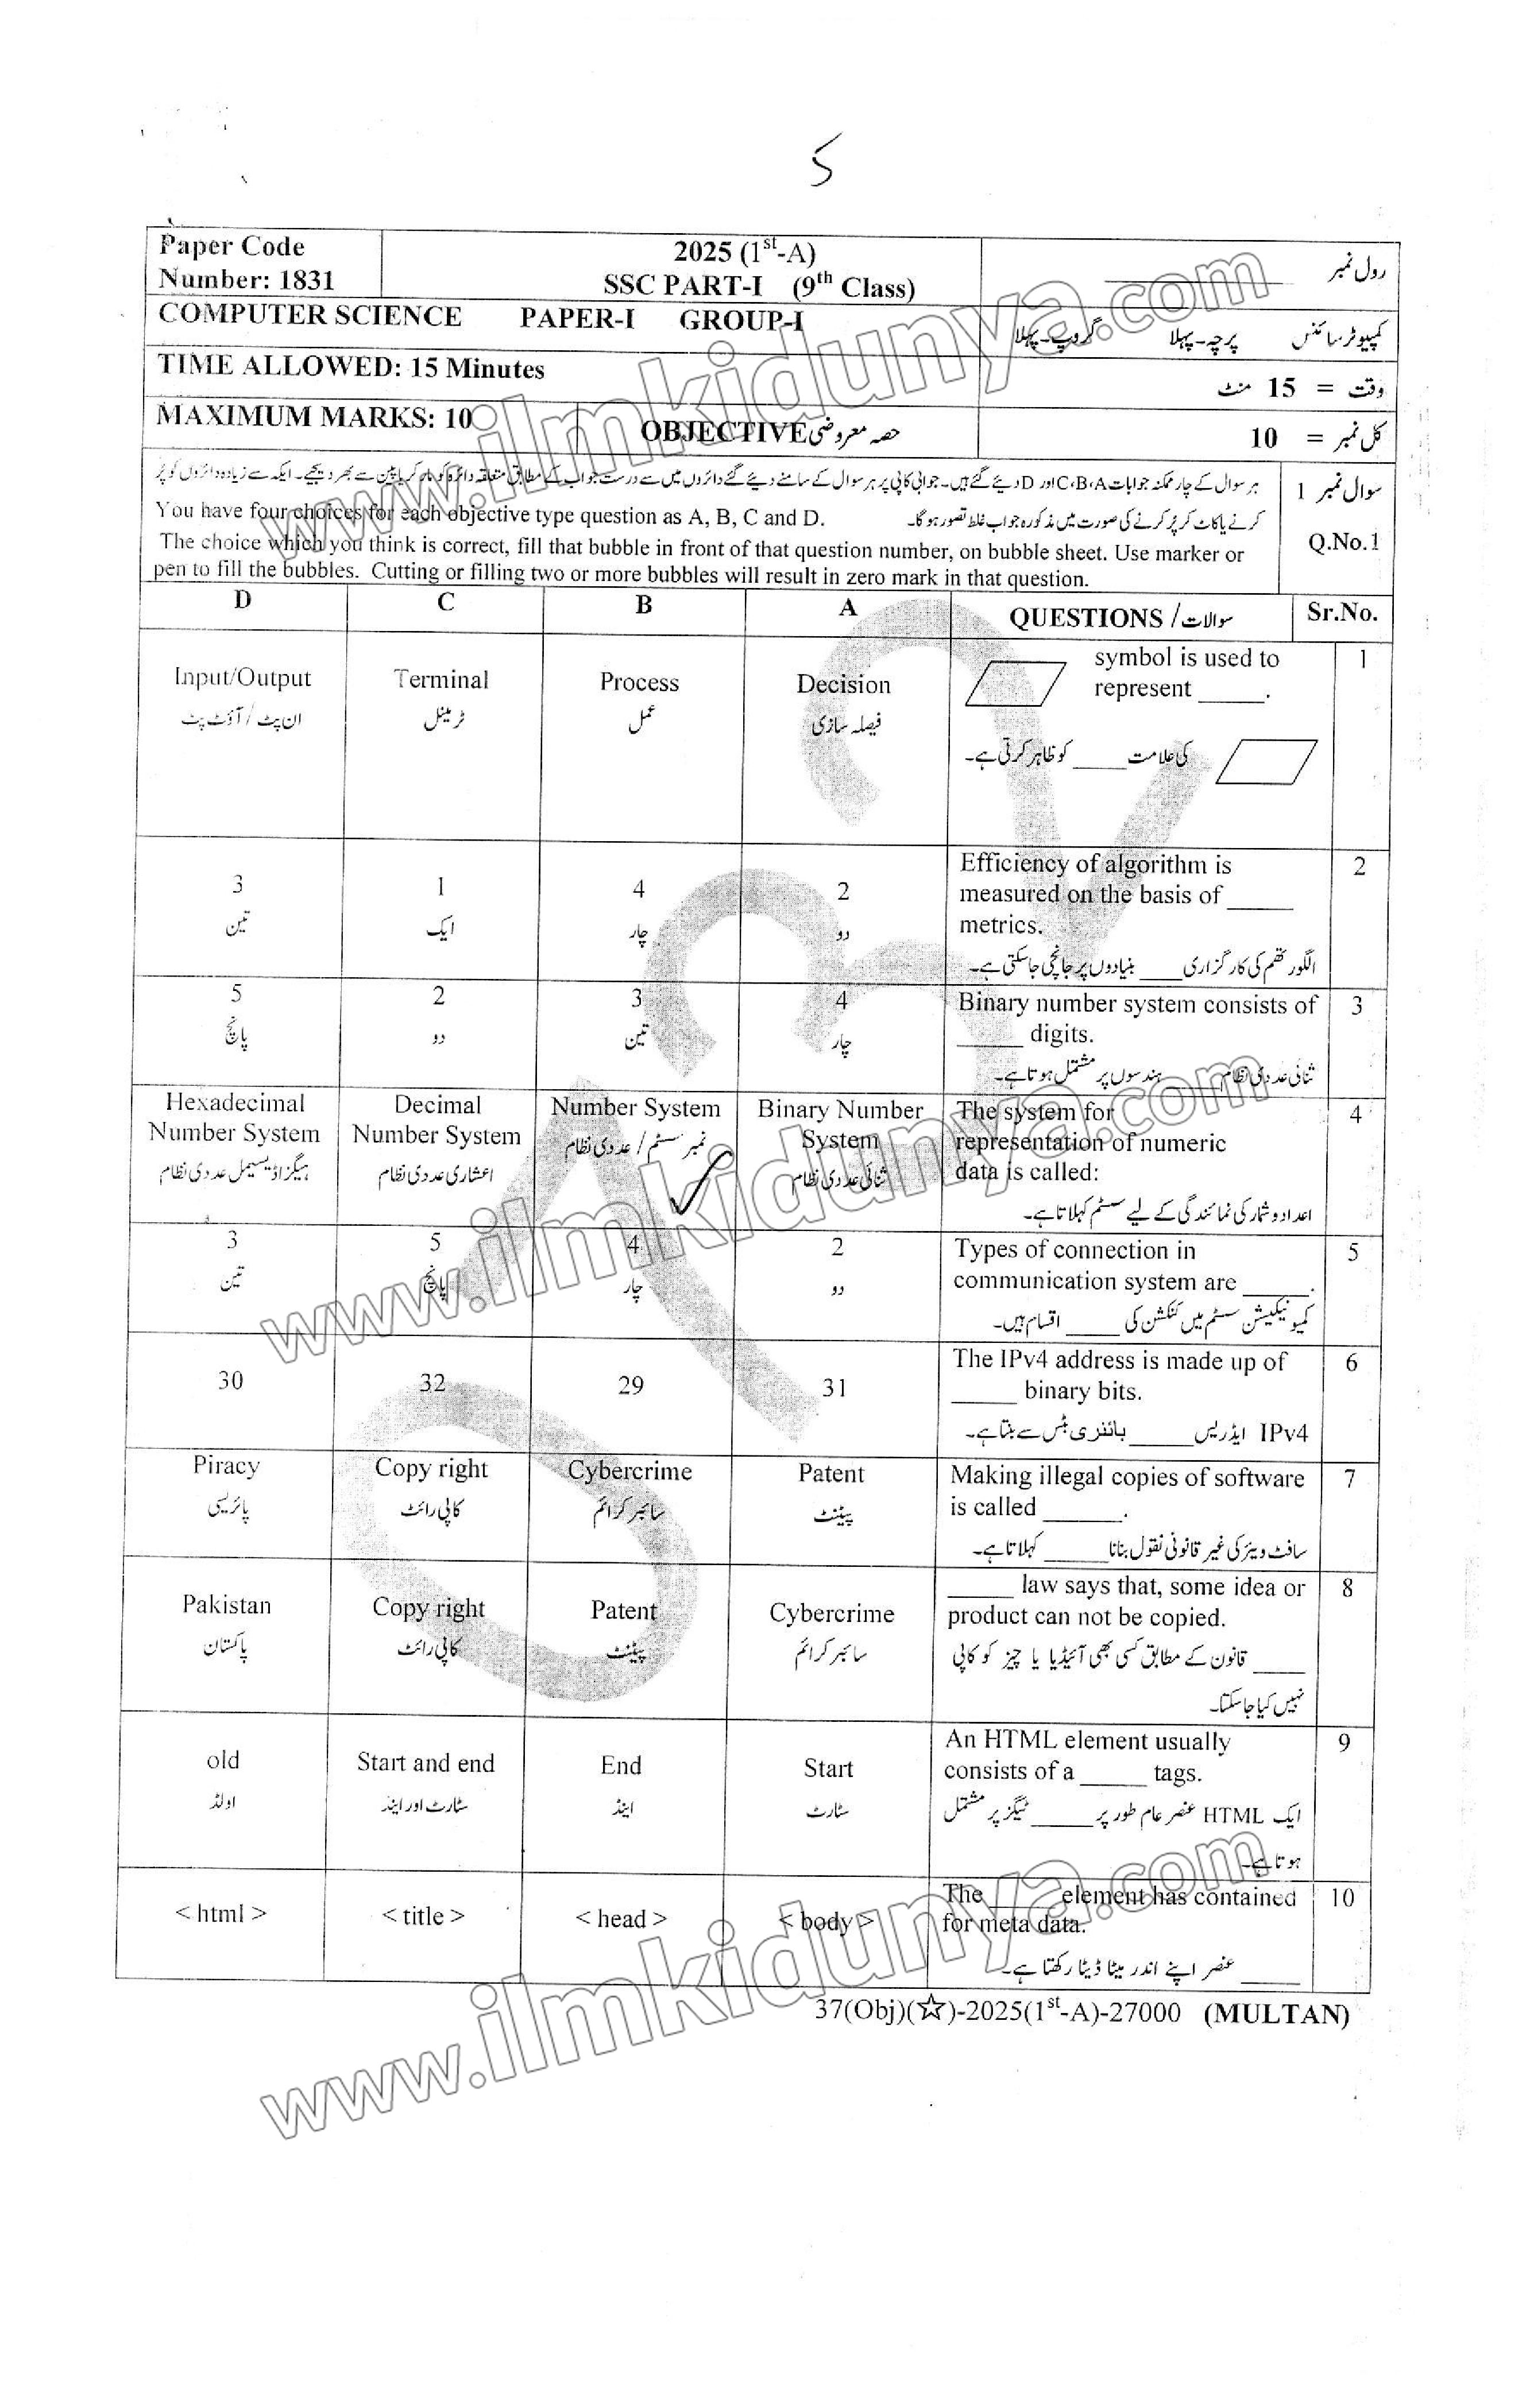 5
Paper Code
Number: 1831
2025 (1st-A)
SSC PART-I (9th Class)
رول نمبر ________
COMPUTER SCIENCE PAPER-I GROUP-I
کمپیوٹر سائنس پرچہ۔پہلا گروپ۔پہلا
TIME ALLOWED: 15 Minutes
وقت = 15 منٹ
MAXIMUM MARKS: 10
OBJECTIVE حصہ معروضی
کل نمبر = 10
سوال نمبر 1
Q.No.1
ہر سوال کے چار ممکنہ جوابات A،B،C اور D دیئے گئے ہیں۔ جوابی کاپی پر ہر سوال کے سامنے دیئے گئے دائروں میں سے درست جواب کے مطابق متعلقہ دائرہ کو مارکر یا پین سے بھر دیجیے۔ ایک سے زیادہ دائروں کو پُر
کرنے یا کاٹ کر پُر کرنے کی صورت میں مذکورہ جواب غلط تصور ہوگا۔
You have four choices for each objective type question as A, B, C and D.
The choice which you think is correct, fill that bubble in front of that question number, on bubble sheet. Use marker or
pen to fill the bubbles. Cutting or filling two or more bubbles will result in zero mark in that question.
D C B A QUESTIONS / سوالات Sr.No.
Input/Output Terminal Process Decision symbol is used to 1
represent _____.
ان پٹ / آؤٹ پٹ ٹرمینل عمل فیصلہ سازی
کی علامت ____ کو ظاہر کرتی ہے۔
3 1 4 2 Efficiency of algorithm is 2
measured on the basis of _____
metrics.
تین ایک چار دو
الگورتھم کی کارگزاری ____ بنیادوں پر جانچی جاسکتی ہے۔
5 2 3 4 Binary number system consists of 3
_____ digits.
پانچ دو تین چار
ثنائی عددی نظام ____ ہندسوں پر مشتمل ہوتا ہے۔
Hexadecimal Decimal Number System Binary Number The system for 4
Number System Number System System representation of numeric
data is called:
ہیگزاڈیسیمل عددی نظام اعشاری عددی نظام نمبر سسٹم / عددی نظام ثنائی عددی نظام
اعداد و شمار کی نمائندگی کے لیے سسٹم کہلاتا ہے۔
3 5 4 2 Types of connection in 5
communication system are _____.
تین پانچ چار دو
کمیونیکیشن سسٹم میں کنکشن کی ____ اقسام ہیں۔
30 32 29 31 The IPv4 address is made up of 6
_____ binary bits.
IPv4 ایڈریس ____ بائنری بٹس سے بنتا ہے۔
Piracy Copy right Cybercrime Patent Making illegal copies of software 7
is called ______.
پائریسی کاپی رائٹ سائبر کرائم پیٹنٹ
سافٹ ویئر کی غیر قانونی نقول بنانا ____ کہلاتا ہے۔
Pakistan Copy right Patent Cybercrime _____ law says that, some idea or 8
product can not be copied.
پاکستان کاپی رائٹ پیٹنٹ سائبر کرائم
____ قانون کے مطابق کسی بھی آئیڈیا یا چیز کو کاپی
نہیں کیا جاسکتا۔
old Start and end End Start An HTML element usually 9
consists of a _____ tags.
اولڈ سٹارٹ اور اینڈ اینڈ سٹارٹ
ایک HTML عنصر عام طور پر ____ ٹیگز پر مشتمل
ہوتا ہے۔
< html > < title > < head > < body > The _____ element has contained 10
for meta data.
____ عنصر اپنے اندر میٹا ڈیٹا رکھتا ہے۔
37(Obj)(☆)-2025(1st-A)-27000 (MULTAN)
www.ilmkidunya.com
www.ilmkidunya.com
www.ilmkidunya.com